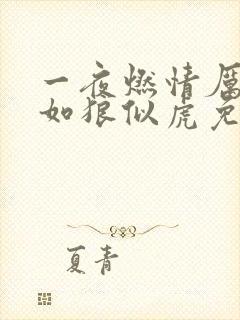 一夜燃情厉
如狼似虎免
夏青